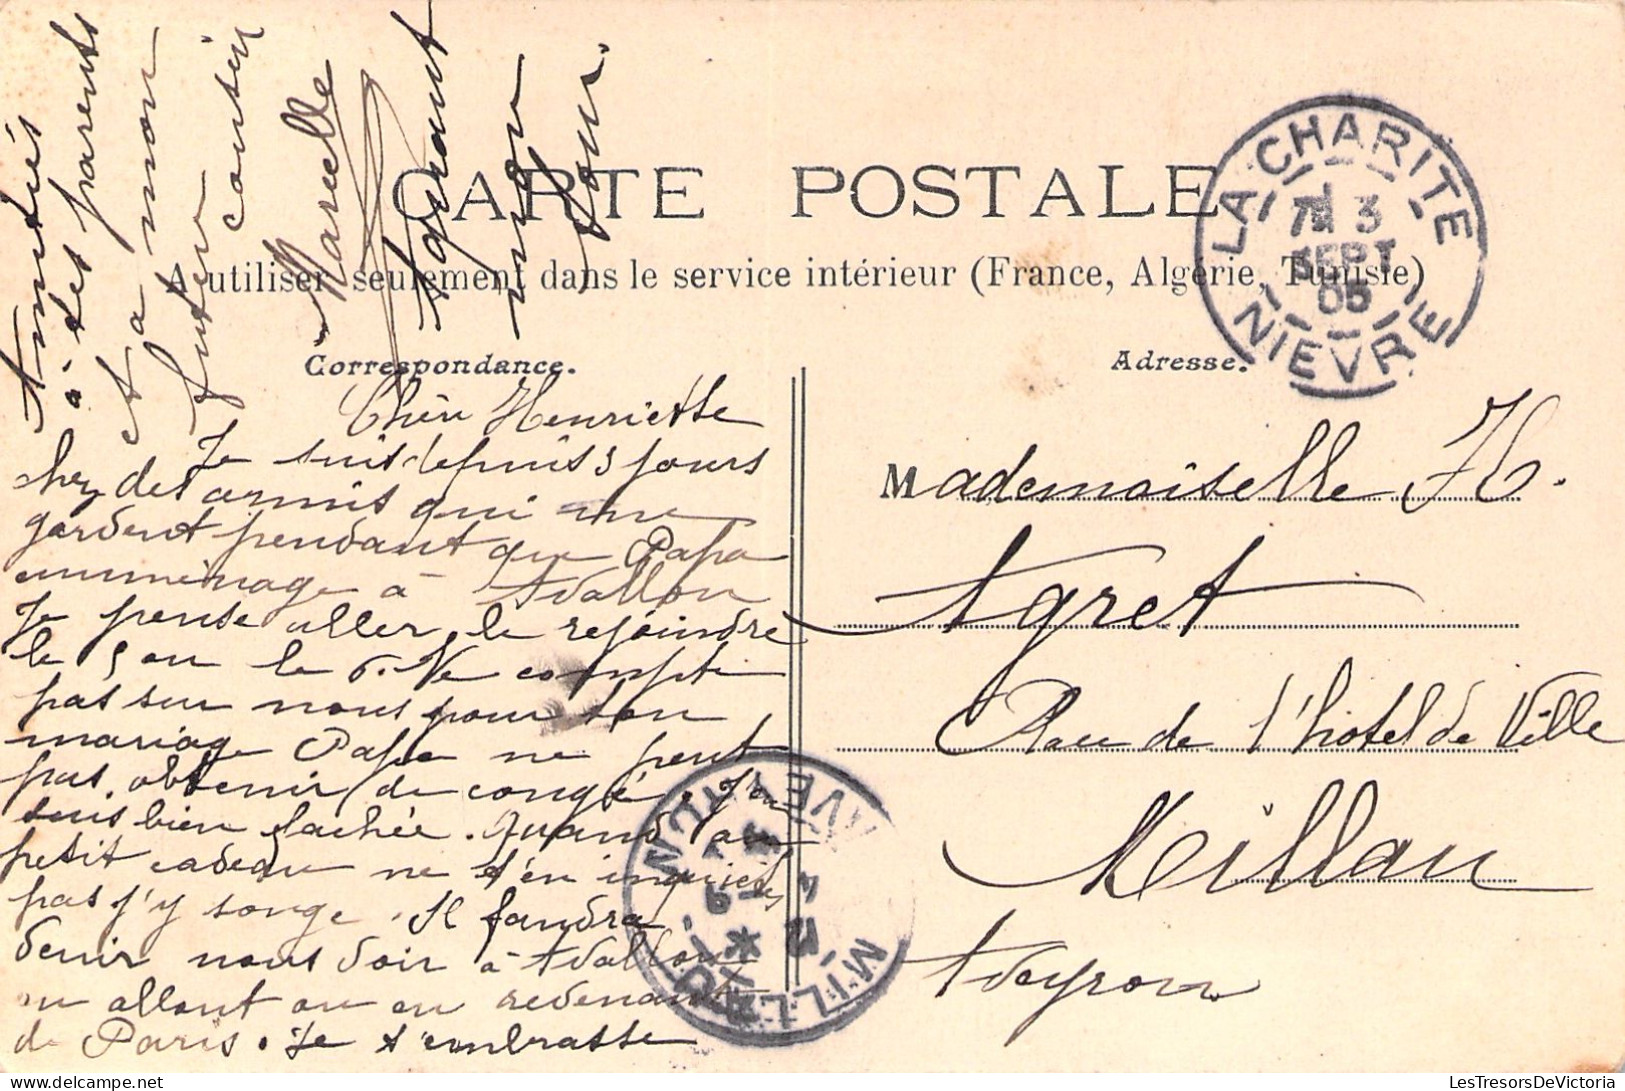 CARTE POSTALE
A utiliser seulement dans le service intérieur (France, Algérie, Tunisie)
Correspondance.
Adresse.
LA CHARITE
3
SEPT
05
NIEVRE
Chère Henriette
Je suis depuis 3 jours
chez des amis qui me
gardent pendant que Papa
emménage à Avallon
Je pense aller le rejoindre
le 5 ou le 6. Ne compte
pas sur nous pour ton
mariage Papa ne peut
pas obtenir de congé. J'en
suis bien fachée. Quand au
petit cadeau ne t'en inquiètes
pas j'y songe. Il faudra
venir nous voir à Avallon
en allant ou en revenant
de Paris. Je t'embrasse
Amitiés
à tes parents
Et a mon
futur
cousin
Marcelle
Mademoiselle H.
Agret
Place de l'hotel de Ville
Millau
Aveyron
MILLAU
AVEYRON
LesTresorsDeVictoria